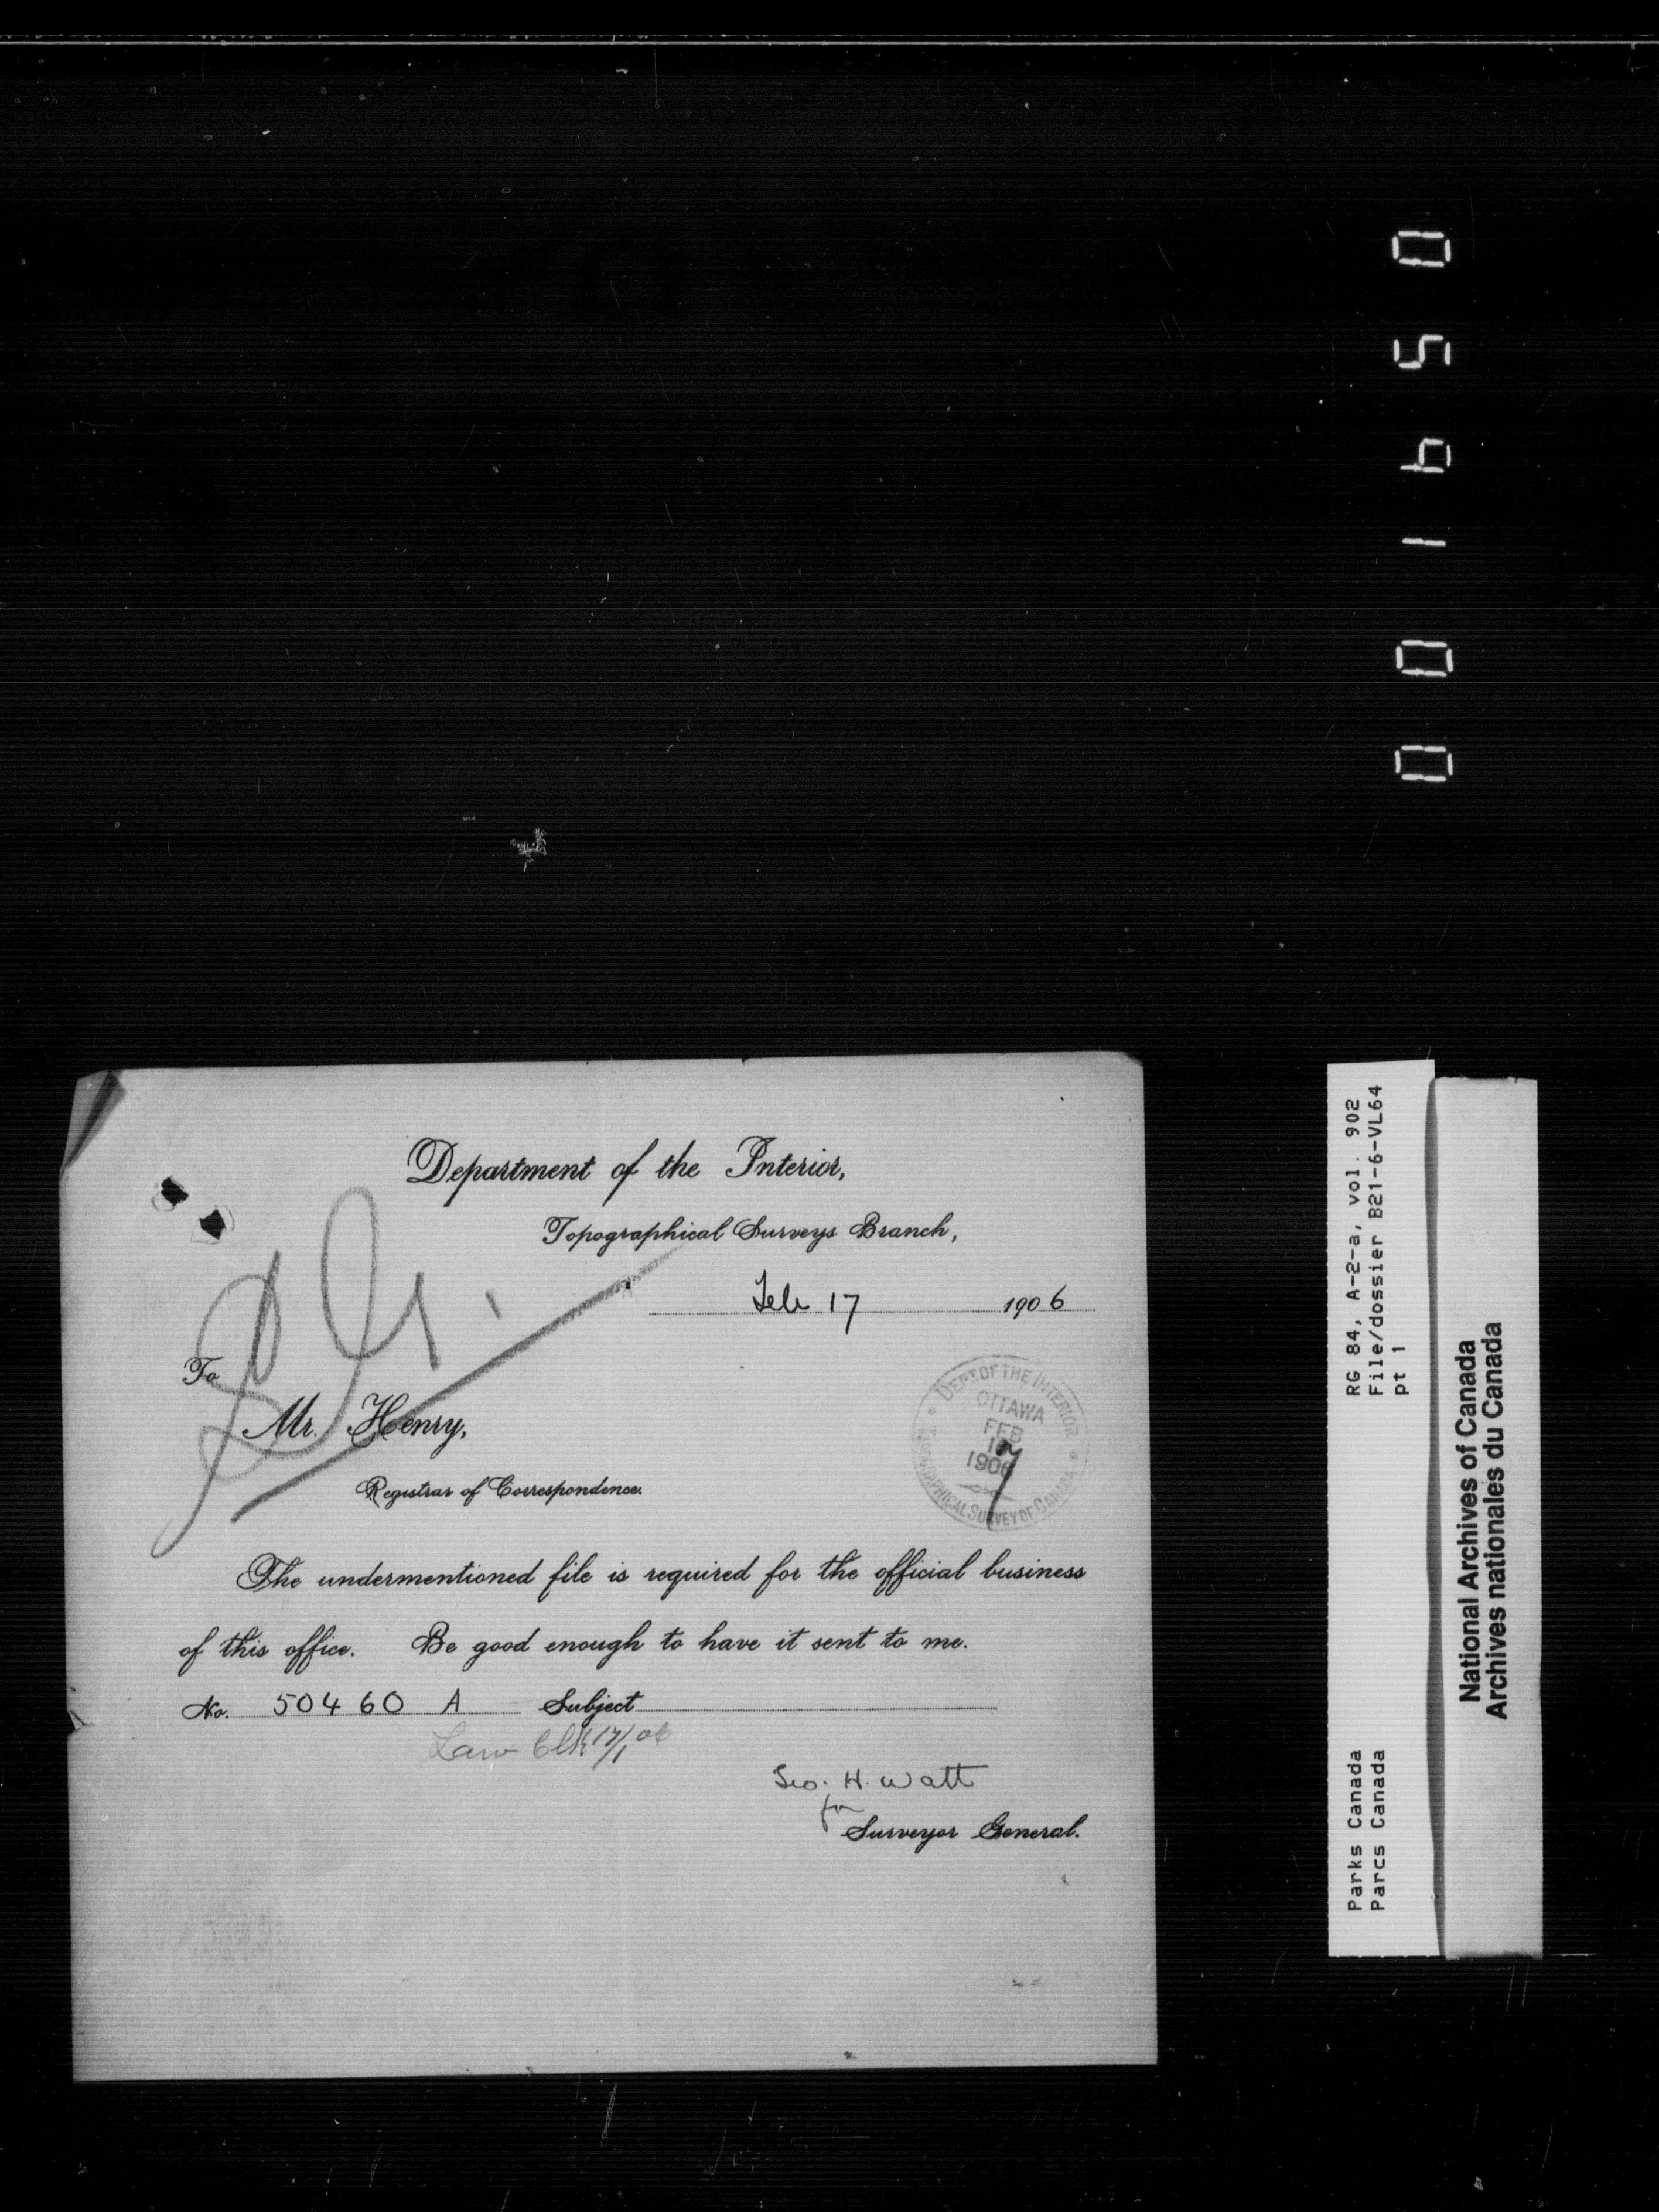 001650
Department of the Interior,
Topographical Surveys Branch,
Feb 17 1906
S G.
To
Mr. Henry,
Registrar of Correspondence.
DEPT OF THE INTERIOR
OTTAWA
FEB
17
1906
TOPOGRAPHICAL SURVEY OF CANADA
The undermentioned file is required for the official business
of this office. Be good enough to have it sent to me.
No. 50460 A Subject
Law Clk 17/1 06
Geo. H. Watt
for
Surveyor General.
RG 84, A-2-a, vol. 902
File/dossier B21-6-VL64
pt 1
Parks Canada
Parcs Canada
National Archives of Canada
Archives nationales du Canada